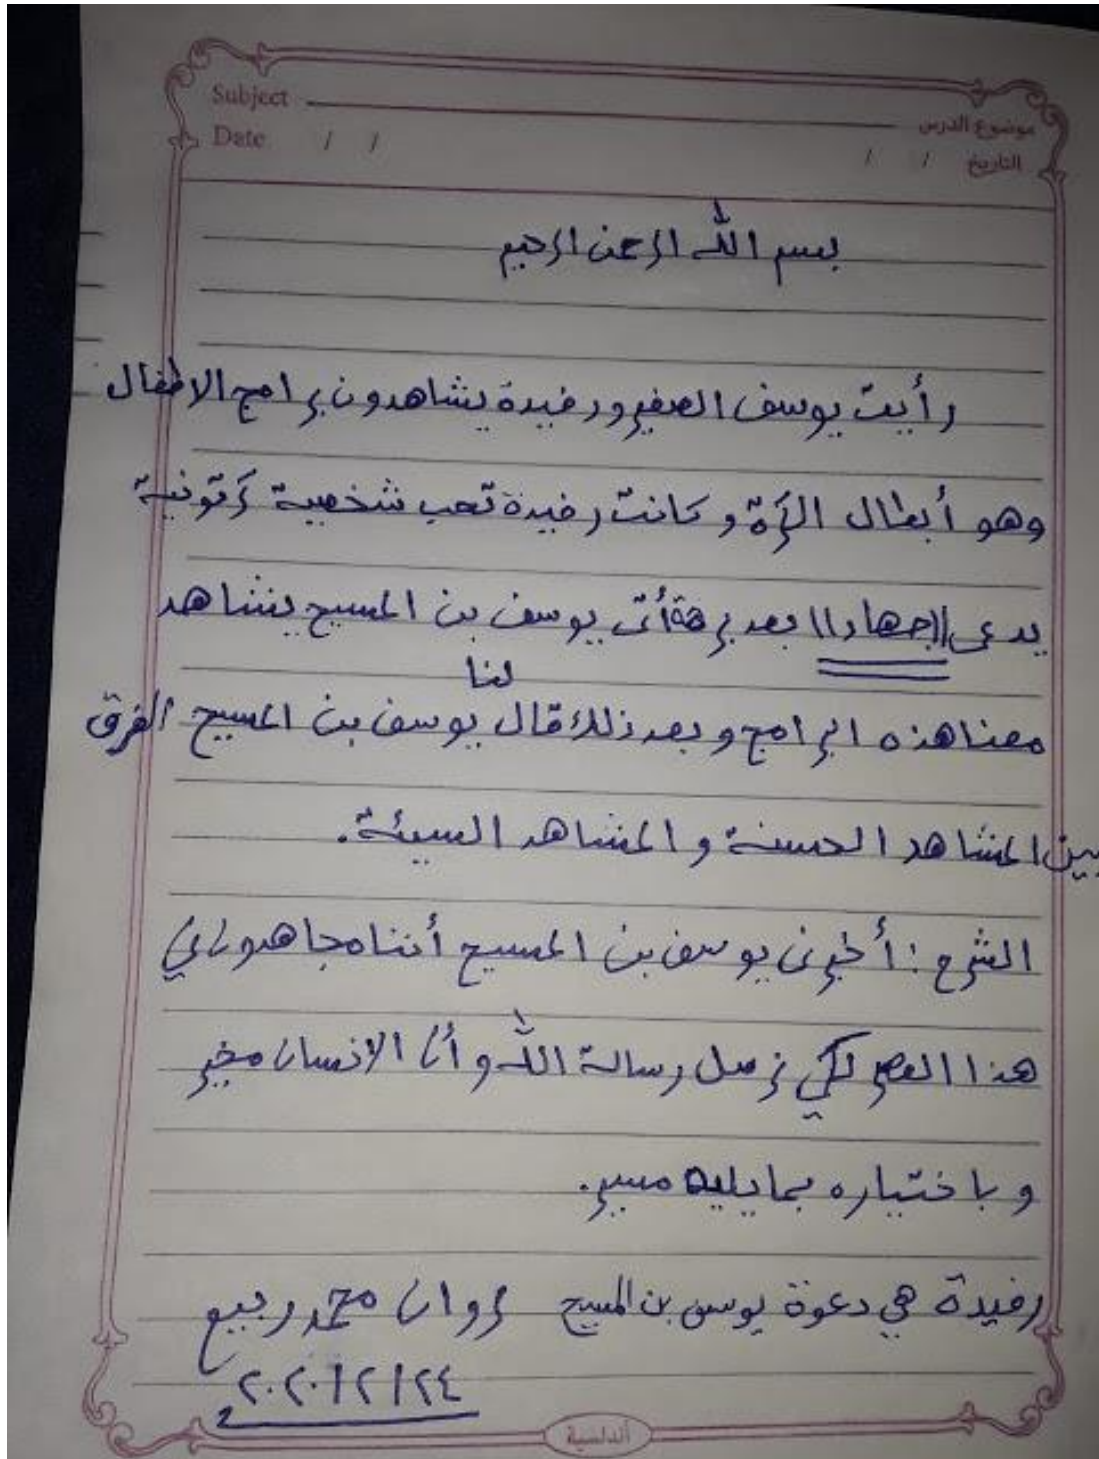 Subject
موضوع الدرس
Date / /
التاريخ / /
بسم الله الرحمن الرحيم
رأيت يوسف الصغير ورفيدة يشاهدون برامج الاطفال
وهو أبطال الكرة و كانت رفيدة تحب شخصية كرتونية
يدعى "جهاد" بعد برهة أتى يوسف بن المسيح يشاهد
لنا
معنا هذه البرامج و بعد ذلك قال يوسف بن المسيح الفرق
بين المشاهد الحسنة و المشاهد السيئة.
الشرح : أخبرني يوسف بن المسيح أننا مجاهدون في
هذا العصر لكي نرسل رسالة الله و أن الانسان مخير
و باختياره بما يليه مسير.
رفيدة هي دعوة يوسف بن المسيح مروان محمد ربيع
٢٠٢٠/٢/٢٤
أندلسية